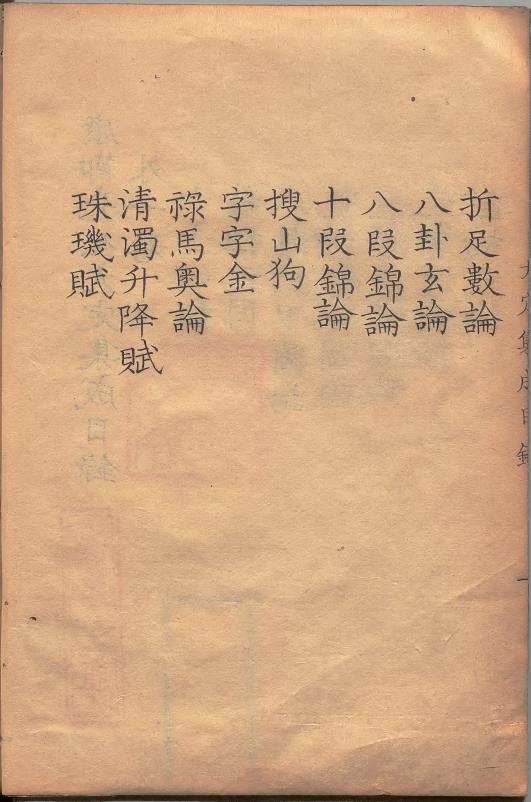 折足數論
八卦玄論
八段錦論
十段錦論
搜山狗
字字金
祿馬奧論
清濁升降賦
珠璣賦
集成目錄
一